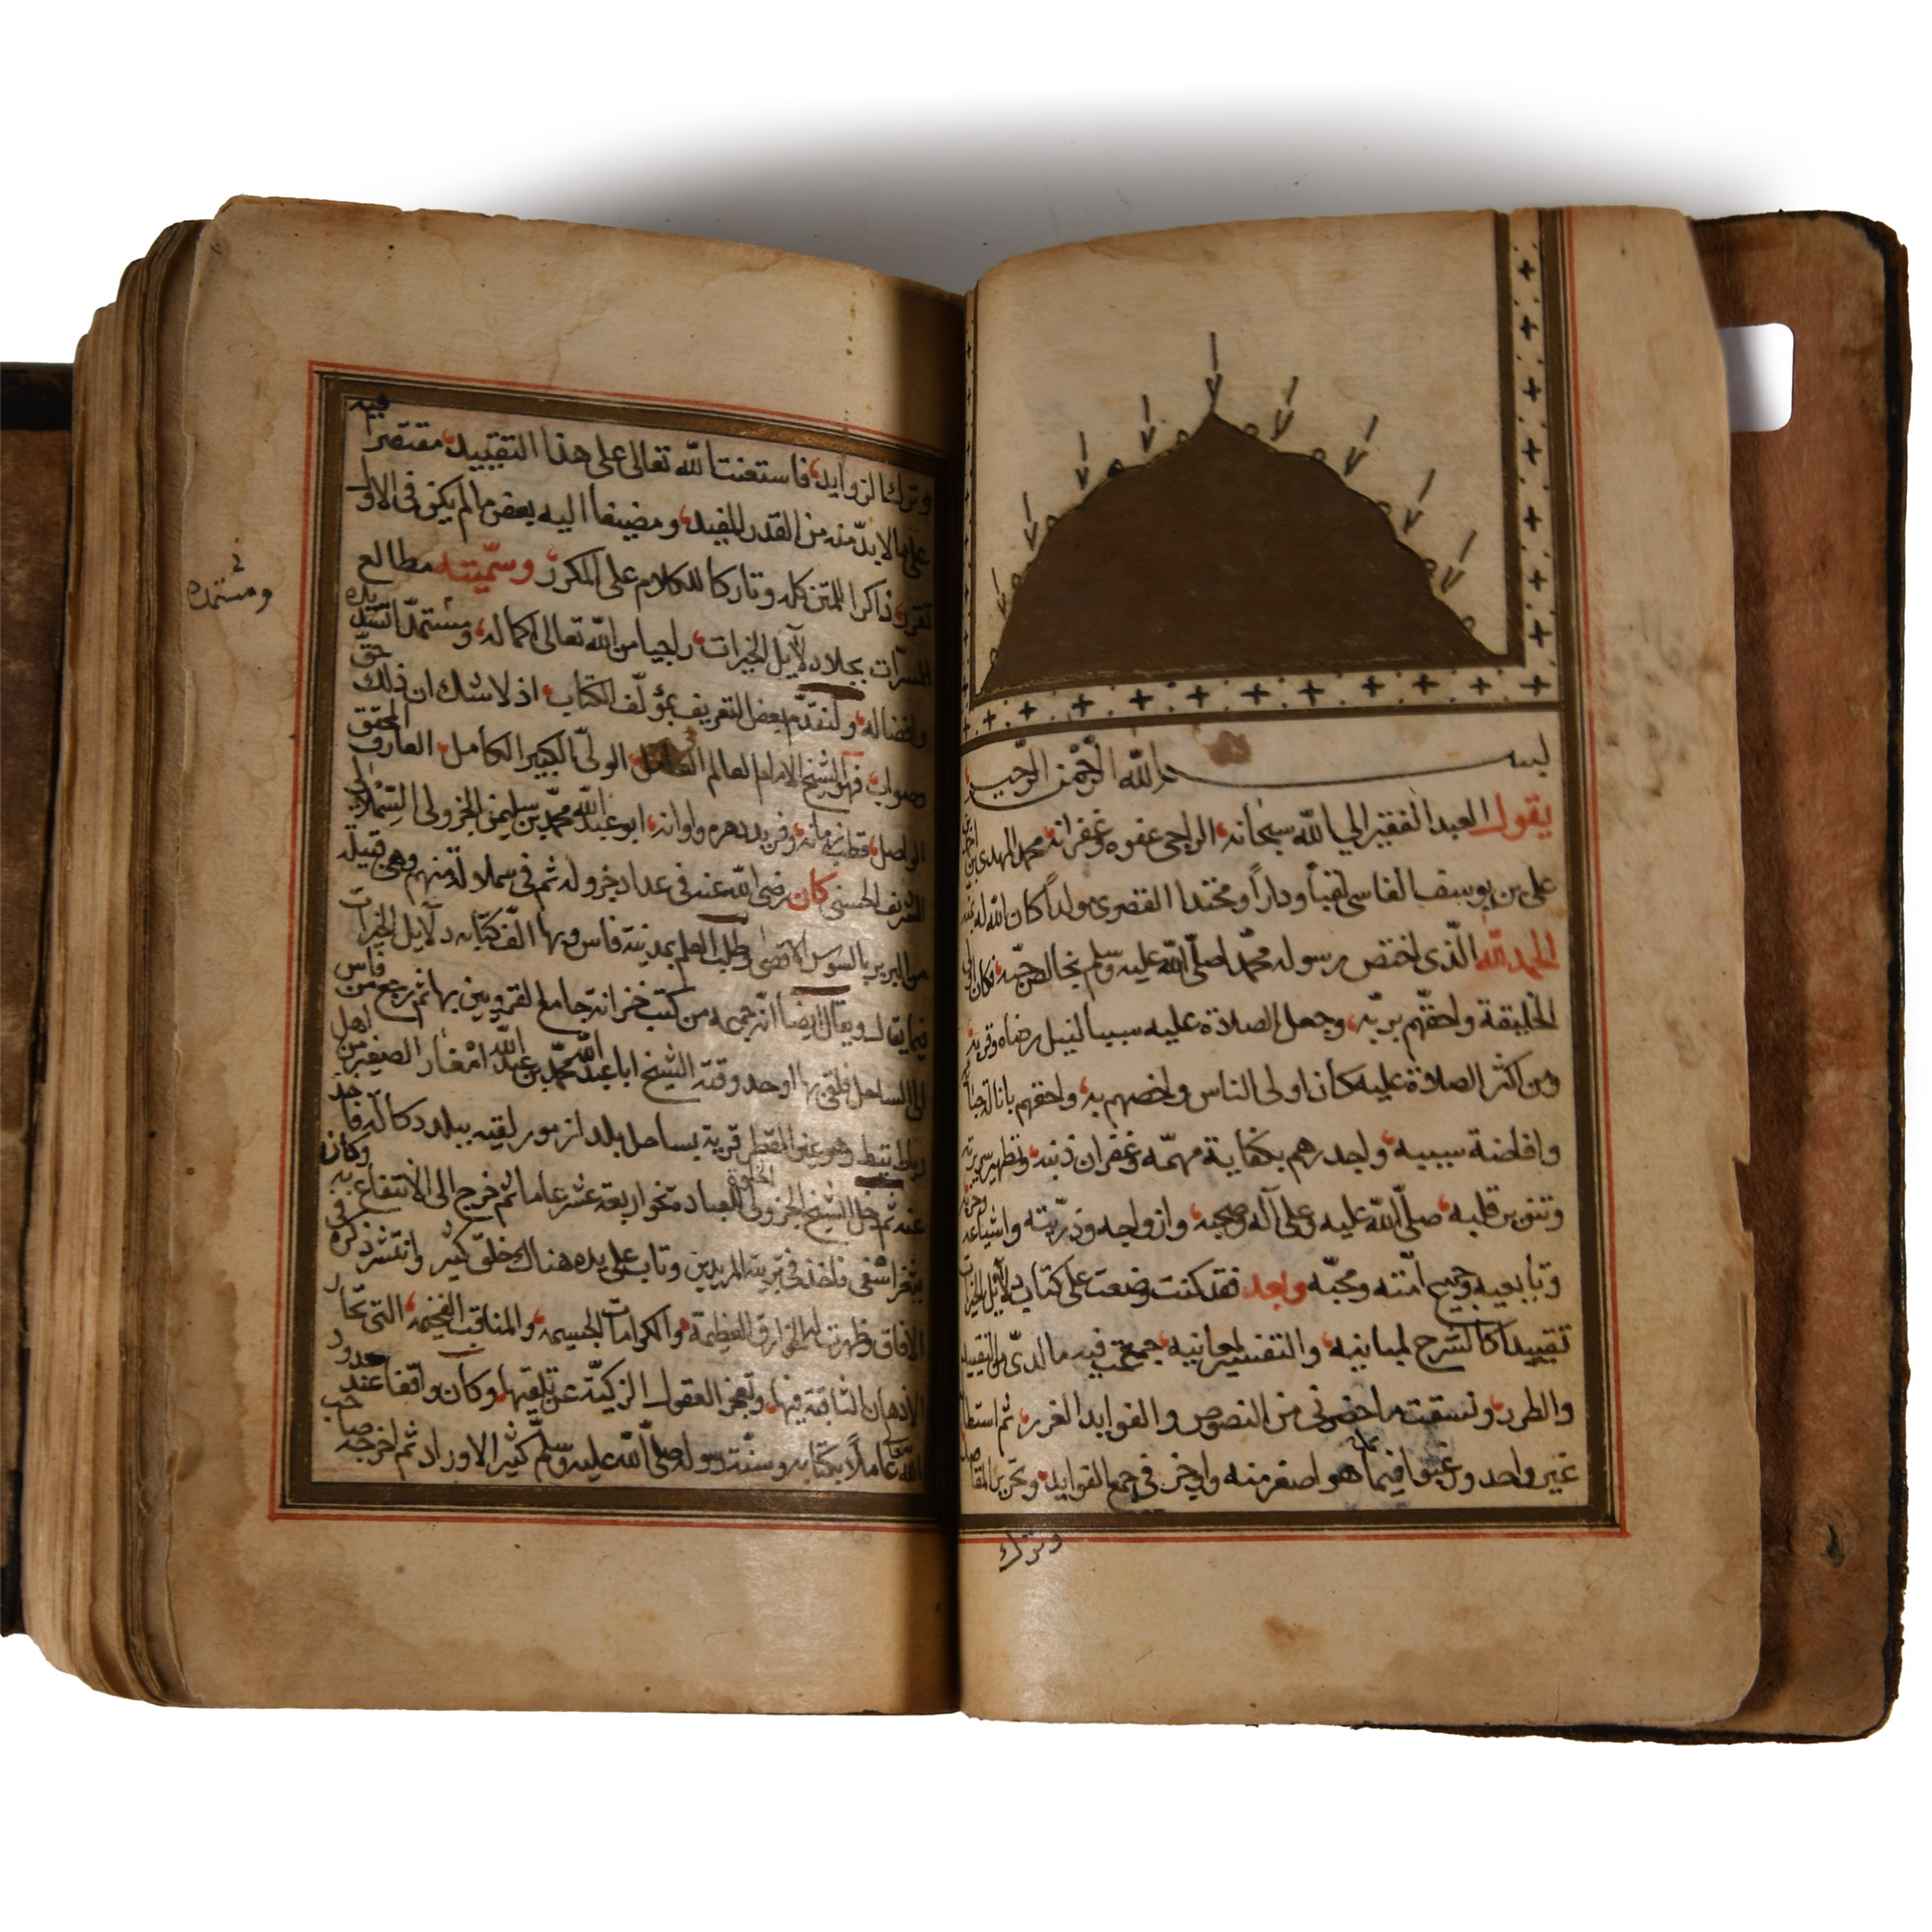 بسم الله الرحمن الرحيم
يقول العبد الفقير الى الله سبحانه الراجى عفوه وغفرانه محمد المهدى بن احمد بن
على بن يوسف الفاسى لقباً وداراً ومحتدا القصرى مولداً كان الله له
الحمد لله الّذى اختص رسوله محمّدا صلّى الله عليه وسلم بخالص حبّه فكان اولى
الخليقة واحقّهم بربّه وجعل الصلاة عليه سببا لنيل رضاه وقربه
ومن اكثر الصلاة عليه كان اولى الناس واخصهم به واحقهم بانالة
وافاضة سيبه واجدرهم بكفاية مهمّه وغفران ذنبه وتطهير سريرته
وتنوير قلبه صلّى الله عليه وعلى آله وصحبه وازواجه وذرّيته واشياعه وحزبه
وتابعيه وجميع امّته ومحبّه وبعد فقد كنت وضعت على كتاب دلائل الخيرات
تقييدا كالشرح لمبانيه والتفسير لمعانيه جمعت فيه ما لدىّ من التقييد
والطرر ونسقت ما حضرنى من النصوص والفوايد الغرر ثم استطال
غير واحد ورغبوا فيما هو اصغر منه واوجز فى جمع الفوايد وتحرير المقاصد
وترك
وترك الزوايد فاستعنت الله تعالى على هذا التقييد مقتصرا فيه
على ما لا بدّ منه من القدر المفيد ومضيفا اليه بعض ما لم يكن فى الاول
تقرر ذاكرا للمتن كله وتاركا للكلام على المكرر وسمّيته مطالع
المسرّات بجلاء دلايل الخيرات راجيا من الله تعالى اكماله ومستمدّا
ومستمده
وافضاله ولنقدّم بعض التعريف بمؤلّف الكتاب اذ لا شك ان ذلك حقّ
وصواب فهو الشيخ الامام العالم العامل الولىّ الكبير الكامل العارف المحقق
الواصل قطب زمانه وفريد دهره واوانه ابو عبد الله محمّد بن سليمن الجزولى السملالى
الشريف الحسنى كان رضى الله عنه فى عداد جزوله ثم فى سملالة منهم وهى قبيلة
من البربر بالسوس الاقصى وطلب العلم بمدينة فاس وبها الّف كتابه دلايل الخيرات
فيما يقال ويقال ايضا انه جمعه من كتب خزانة جامع القرويين بها ثم رجع من فاس
الى الساحل فلقى بها اوحد وقته الشيخ ابا عبد الله محمّد بن عبد الله امغار الصغير من اهل
رباط تيط وهو عين الفطر قرية بساحل بلد ازمور لقيه ببلد دكالة فاخذ
عنه ثم دخل الشيخ الجزولى الخلوة للعبادة نحو اربعة عشر عاما ثم خرج الى الانتفاع به وكان
بثغر اسفى فاخذ فى تربية المريدين وتاب على يده هناك خلق كثير وانتشر ذكره فى
الافاق وظهرت له الخوارق العظيمة والكرامات الجسيمه والمناقب الفخيمه التى تحار
الاذهان الثاقبة فيها وتعجز العقول الزكيّة عن تلقيها وكان واقفا عند حدود
الله عاملاً بكتابه وسنّة رسوله صلّى الله عليه وسلّم كثير الاوراد ثم اخرجه صاحب